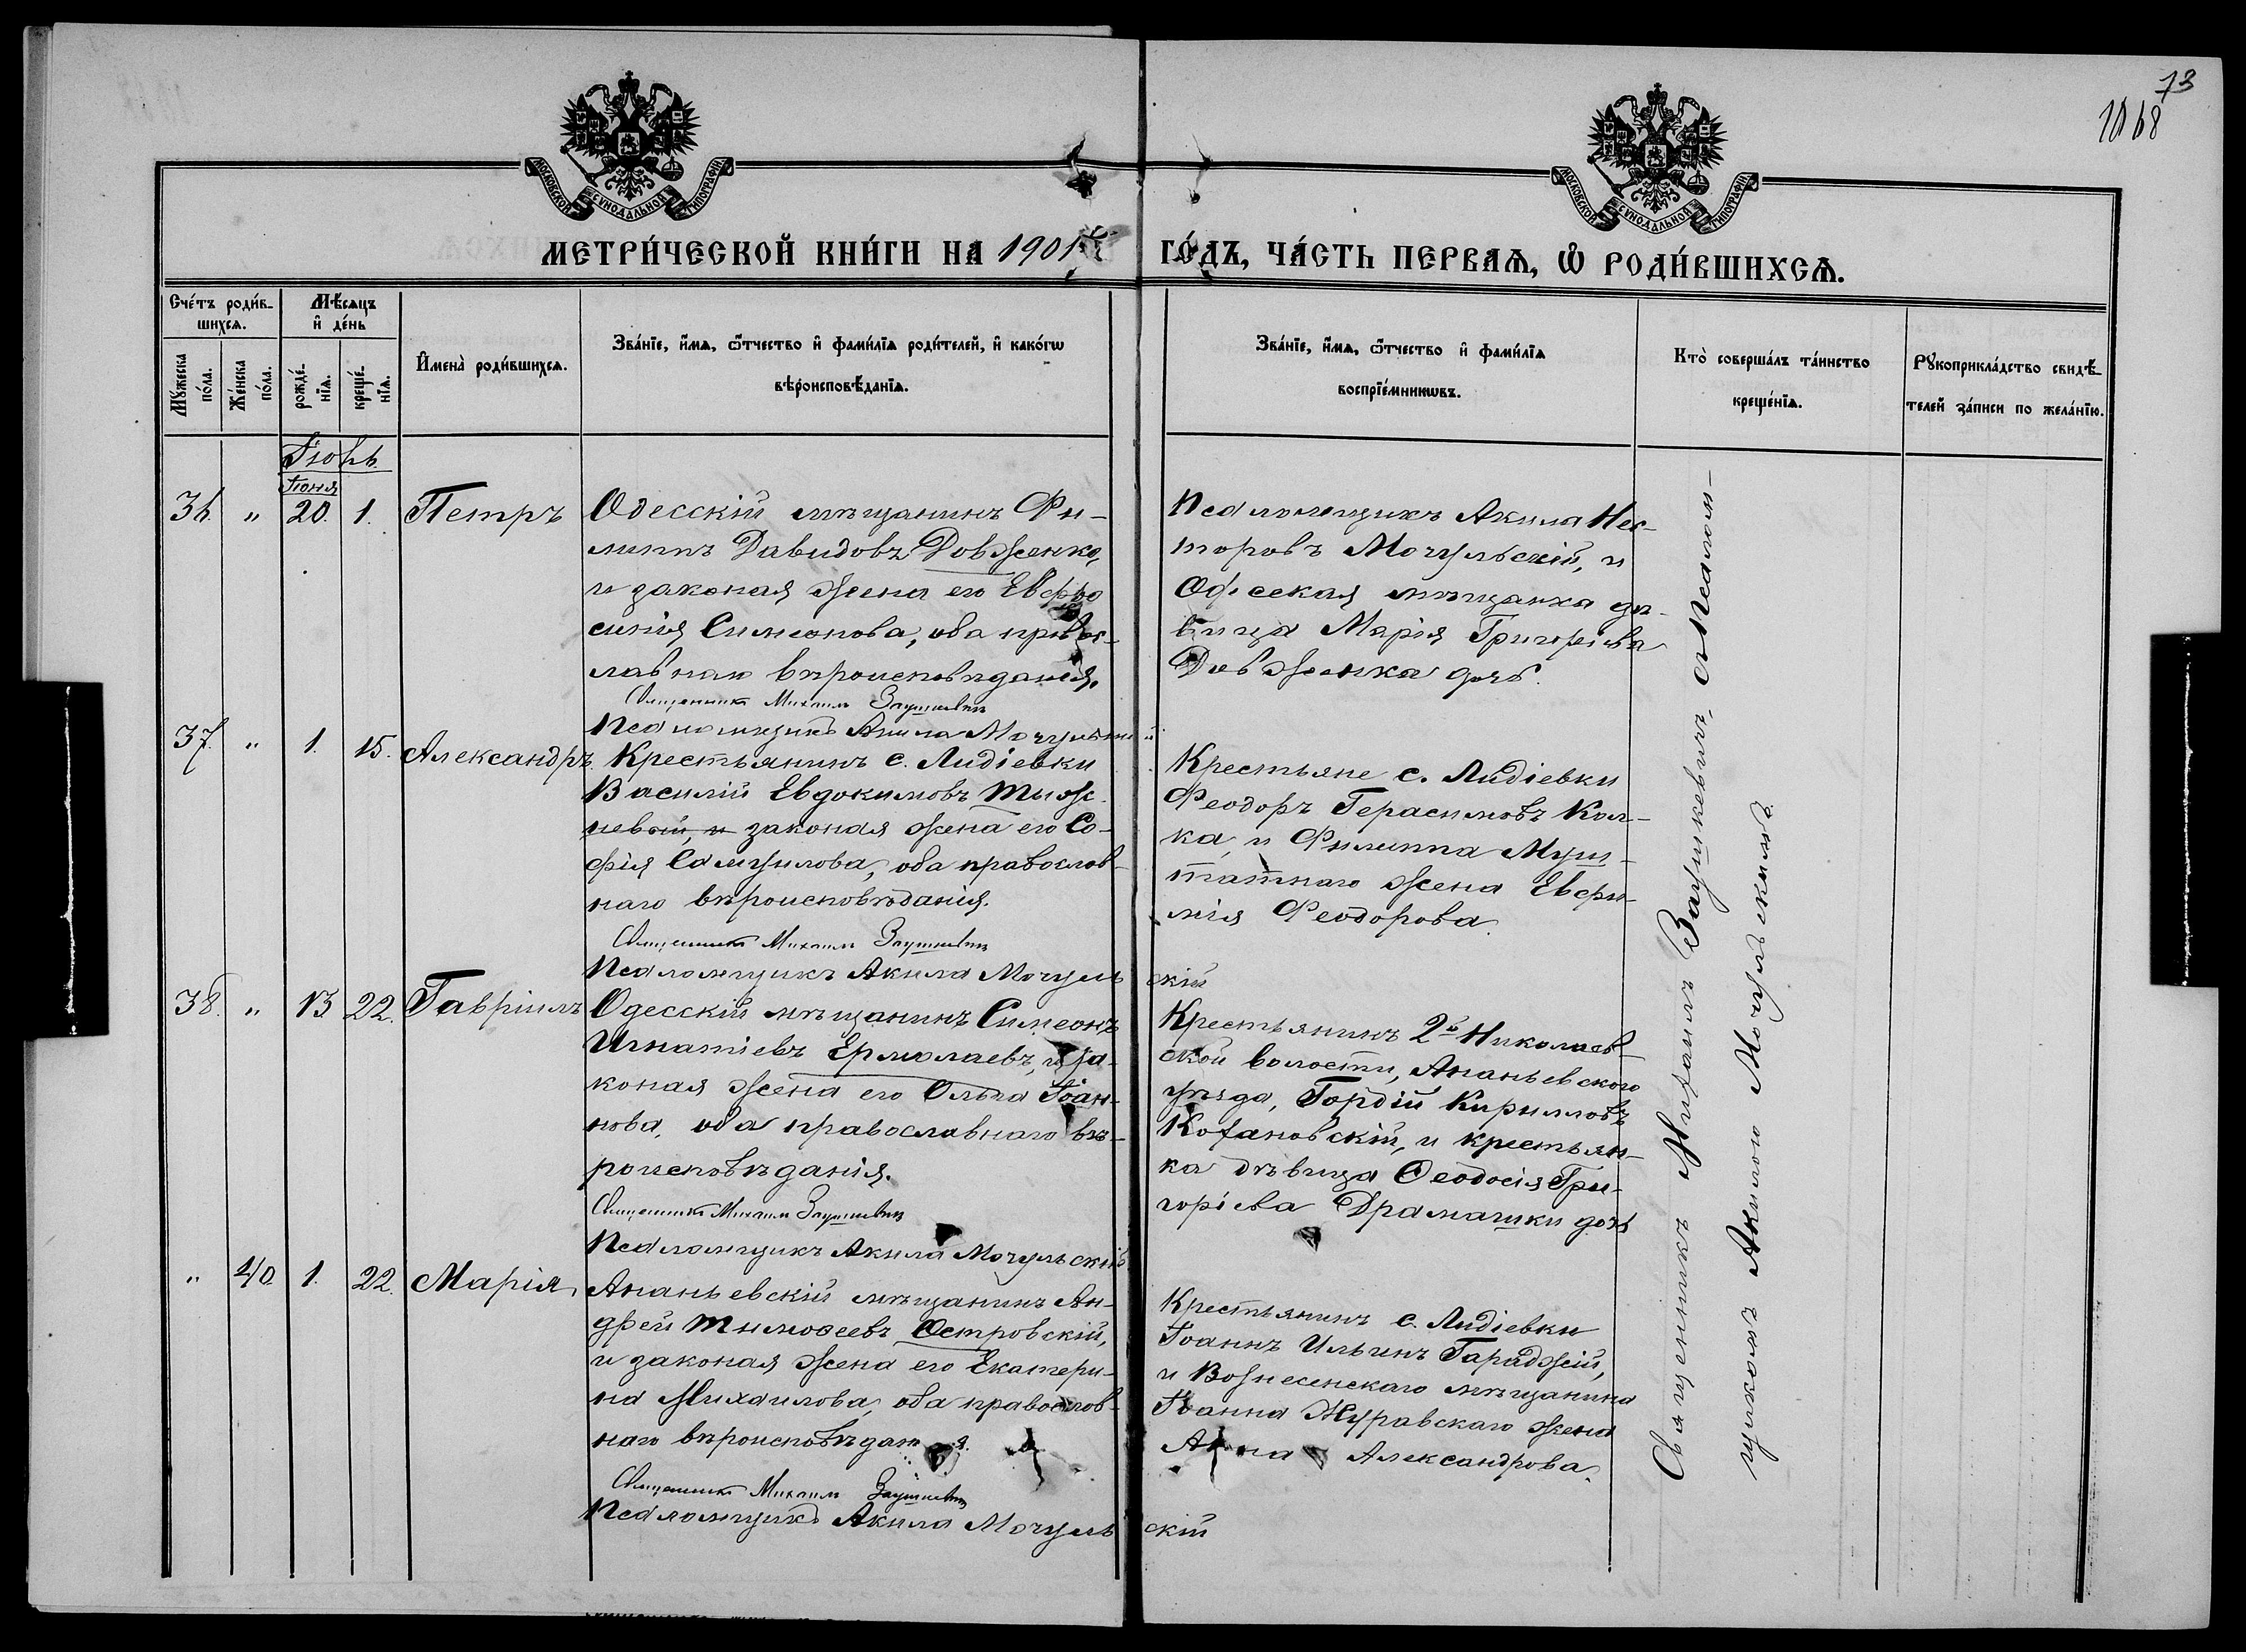 73
1068
МОСКОВСКОЙ СѴНОДАЛЬНОЙ ТИПОГРАФІИ
МОСКОВСКОЙ СѴНОДАЛЬНОЙ ТИПОГРАФІИ
МЕТРИ́ЧЕСКОЙ КНИ́ГИ НА 1901й ГО́ДЪ, ЧА́СТЬ ПЕРВАѦ, Ѡ РОДИ́ВШИХСѦ.
Сче́тъ роди́в-
шихсѧ.
Мѣ́сѧцъ
и де́нь
Мꙋ́жеска
по́ла.
Же́нска
по́ла.
рожде́-
нїѧ.
креще́-
нїѧ.
Имена̀ роди́вшихсѧ.
Зва́нїе, и́мѧ, ѻ́тчество и фами́лїѧ роди́телей, и како́гѡ
вѣроисповѣ́данїѧ.
Зва́нїе, и́мѧ, ѻ́тчество и фами́лїѧ
воспрїе́мникѡвъ.
Кто̀ соверша́лъ та́инство
креще́нїѧ.
Рꙋкоприкла́дство свидѣ́-
телей за́писи по жела́нїю.
Іюль
Іюня
36. " 20. 1. Петръ
Одесскій мѣщанинъ Фи-
липпъ Давидовъ Довженко,
и законая жена его Евфро
синія Симеонова, оба правос-
лавнаго вѣроисповѣданія.
Священникъ Михаилъ Заушкевичъ
Псаломщикъ Акила Мочульскій
Псаломщикъ Акила Нес-
торовъ Мочульскій, и
Одесская мѣщанка дѣ-
вица Марія Григоріева
Довженка дочь.
37. " 1. 15. Александръ.
Крестьянинъ с. Лидіевки
Василій Евдокимовъ Тыж-
невый, и законая жена его Со-
фія Самуилова, оба православ-
наго вѣроисповѣданія.
Священникъ Михаилъ Заушкевичъ
Псаломщикъ Акила Мочульскій
Крестьяне с. Лидіевки
Феодоръ Герасимовъ Кол-
ка, и Филиппа Муш-
татнаго жена Евфи-
мія Феодорова.
38. " 13 22. Гавріилъ
Одесскій мѣщанинъ Симеонъ
Игнатіевъ Ермолаевъ, и за-
коная жена его Ольга Іоан-
нова, оба православнаго вѣ-
роисповѣданія.
Священникъ Михаилъ Заушкевичъ
Псаломщикъ Акила Мочульскій
Крестьянинъ 2й Николаев-
ской волости, Ананьевского
уѣзда, Гордій Кирилловъ
Кохановскій, и крестьян-
ка дѣвица Ѳеодосія Гри-
горіева Драмашки дочь
" 40. 1. 22. Марія
Ананьевскій мѣщанинъ Ан-
дрей Тимоѳеевъ Островскій,
и законая жена его Екатери-
на Михаилова, оба православ-
наго вѣроисповѣданія.
Священникъ Михаилъ Заушкевичъ
Псаломщикъ Акила Мочульскій
Крестьянинъ с. Лидіевки
Іоаннъ Ильинъ Гараджій,
и Вознесенскаго мѣщанина
Іоанна Журавскаго жена
Анна Александрова.
Священникъ Михаилъ Заушкевичъ, съ Псалом-
щикомъ Акилою Мочульскимъ.